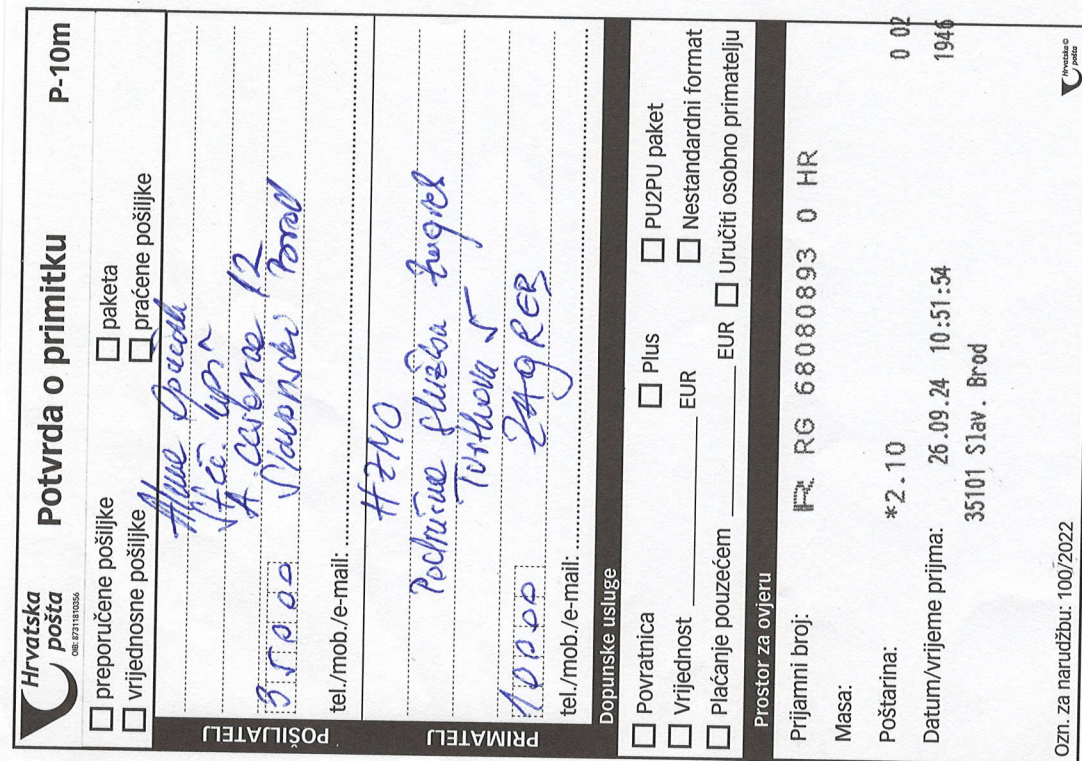 Hrvatska pošta
OIB: 87311810356
Potvrda o primitku
P-10m
preporučene pošiljke
paketa
vrijednosne pošiljke
praćene pošiljke
POŠILJATELJ
12
35000 Slavonski Brod
tel./mob./e-mail:
PRIMATELJ
HZMO
Područna služba Zagreb
5
10000 ZAGREB
tel./mob./e-mail:
Dopunske usluge
Povratnica
Plus
PU2PU paket
Vrijednost EUR
Nestandardni format
Plaćanje pouzećem EUR
Uručiti osobno primatelju
Prostor za ovjeru
Prijamni broj: R RG 68080893 0 HR
Masa:
Poštarina: *2.10
0 02
Datum/vrijeme prijma: 26.09.24 10:51:54
1946
35101 Slav. Brod
Ozn. za narudžbu: 100/2022
Hrvatska pošta